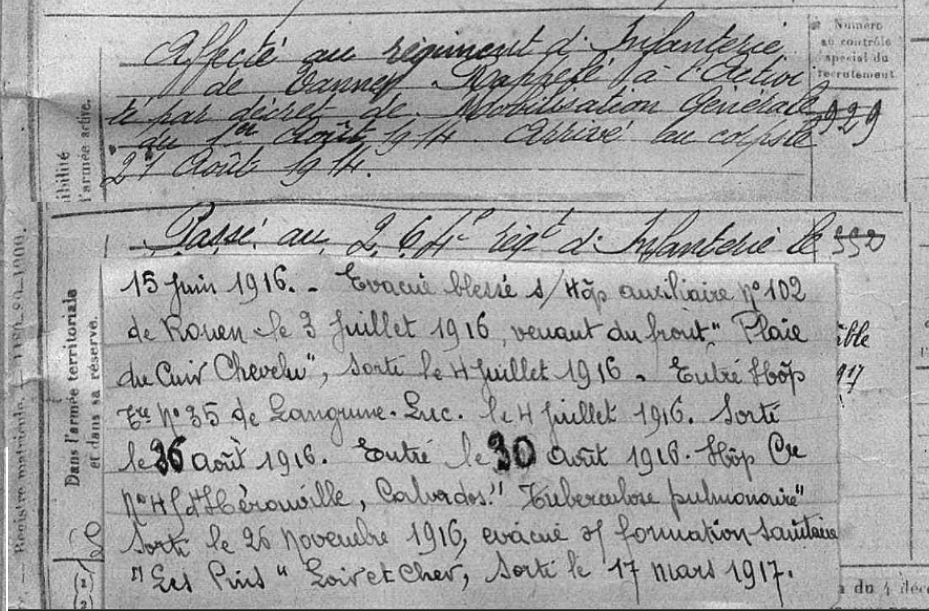 Affecté au régiment d'Infanterie
de Vannes Rappelé à l'Activi
té par décret de Mobilisation Générale
du 1er Août 1914 Arrivé au corps le
21 Août 1914.
Numéro
au contrôle
spécial du
recrutement
929
ibilité
l'armée active.
Passé au 264e régt d'Infanterie le
Dans l'armée territoriale
et dans sa réserve.
Registre matricule.
15 Juin 1916. - Evacué blessé s/ Hôp auxiliaire n° 102
de Rouen le 3 Juillet 1916, venant du front " Plaie
du Cuir Chevelu", Sorti le 4 Juillet 1916. Entré Hôp
Cre N° 35 de Langrune-Luc. le 4 Juillet 1916. Sorti
le 26 Août 1916. Entré le 30 Août 1916. Hôp Cre
N° 45 d'Hérouville, Calvados. " Tuberculose pulmonaire"
Sorti le 26 Novembre 1916, évacué s/ formation sanitaire
"Les Pins" Loir et Cher, Sorti le 17 Mars 1917.
ible
917
du 4 déc